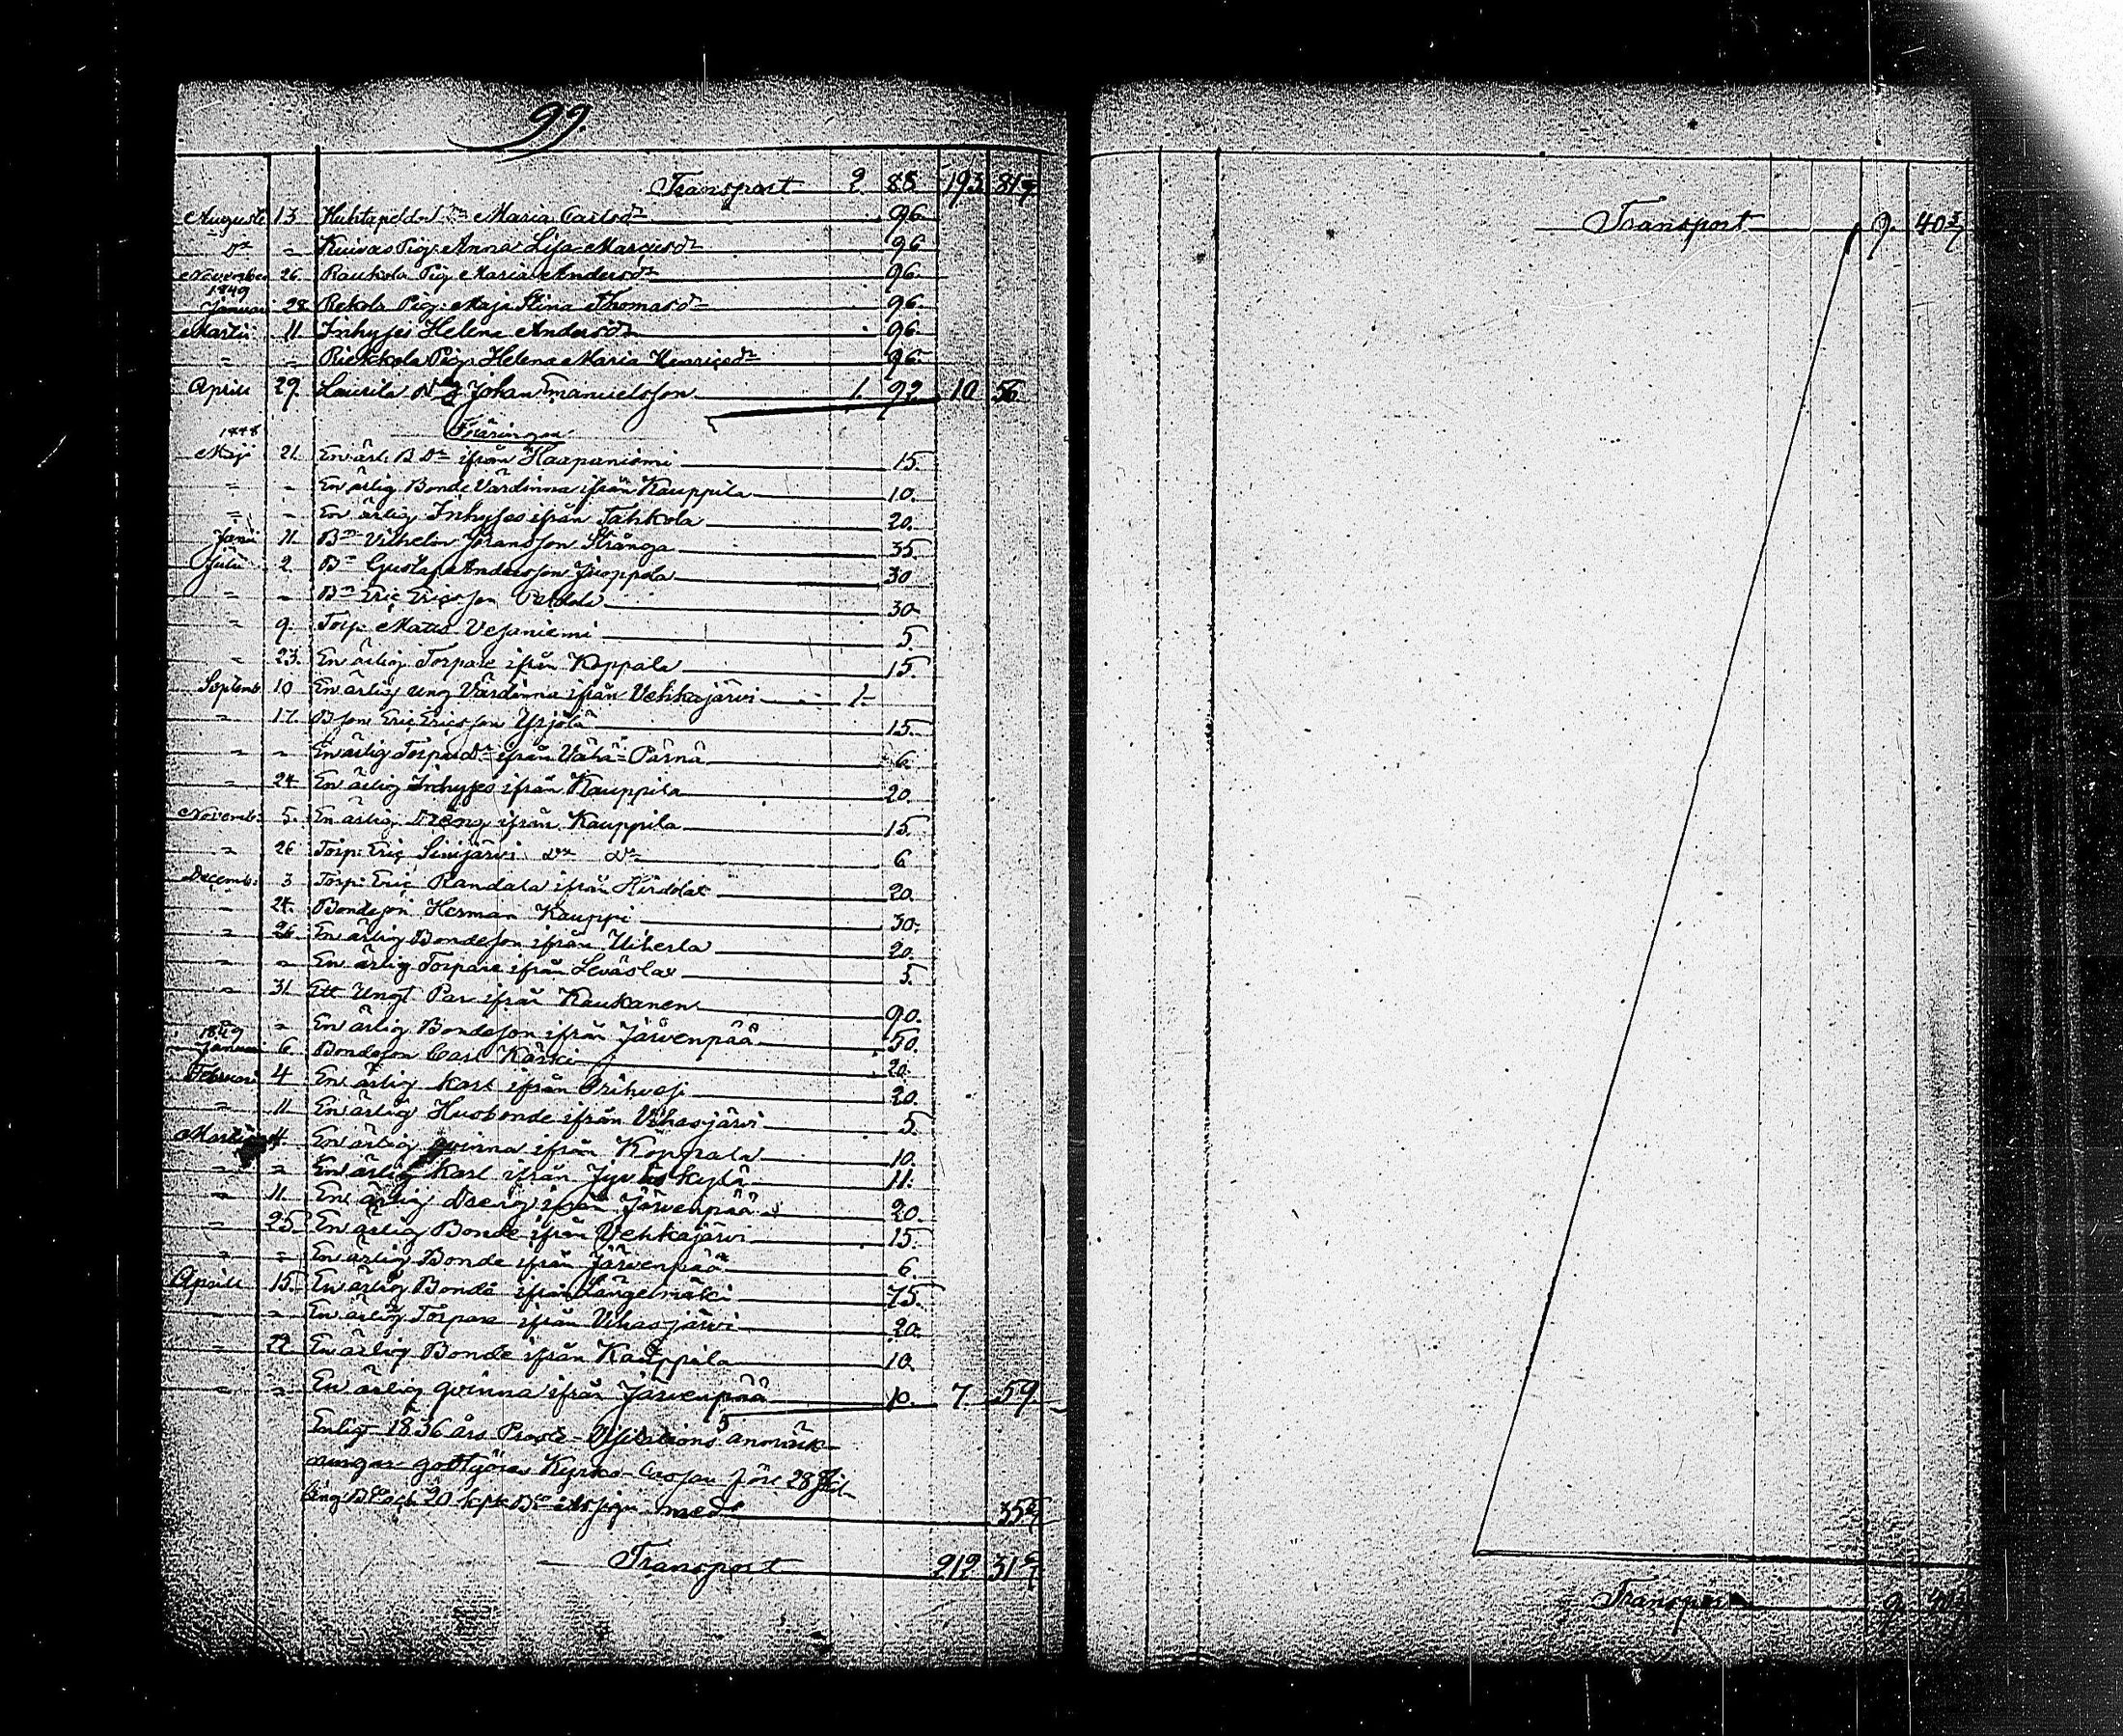 99.
Transport 2. 88 193 81 2/7
Augusti 13. Huhtapeldo Maria Carlsdr 96.
Dr " Kuivas Pig. Anna Lisa Marcusdr 96
November 26. Raukola Pig. Maria Andersdr 96.
1849
Januari 28. Rekola Pig: Maja Stina Thomasdr 96.
Martii 11. Inhyses Helena Andersdr 96.
" " Riekkola Pig. Helena Maria Henricsdr 96.
Aprill 29. Laurila Johan Emanuelsson 1. 92. 10 56.
Täringen
1848
Maji 21. En ärl. B. Dr ifrån Haapaniemi 15.
" " En ärlig Bonde Värdinna ifrån Kauppila 10.
" " En ärlig Inhyses ifrån Tahkola 20.
Juni 11. Bn Vilhelm Göransson Stränga 35
Julii 2. Bn Gustaf Andersson Juoppola 30
" " Bn Eric Ericsson 30.
" 9. Torp. Matts Vesaniemi 5.
" 23. En ärlig Torpare ifrån Koppala 15.
Septemb. 10 En ärlig ung Värdinna ifrån Vehkajärvi 1.
" 17. Bson Eric Ericsson Yrjölä 15.
" " En ärlig Torpare Dr ifrån Vähä-Pärnä 6.
" 24 En ärlig Inhyses ifrån Kauppila 20.
Novemb. 5. En ärlig Dräng ifrån Kauppila 15.
" 26 Torp: Eric Sinijärvi Dr Dr 6
Decemb. 3 Torp: Eric Randala ifrån 20.
" 24. Bondeson Herman Kauppi 30.
" 26 En ärlig Bondeson ifrån Uiherla 20.
" " En ärlig Torpare ifrån Leväsla 5.
" 31 Ett Ungt Par ifrån Kaukanen 90.
" En ärlig Bondeson ifrån Järvenpää 50.
1849
Januari 6. Bondeson Carl Kärki 20.
Februari 4 En ärlig karl ifrån Prihvasi 20.
" 11. En ärlig Husbonde ifrån Vihasjärvi 5.
Martii 4. En ärlig qvinna ifrån Koppala 10.
" " En ärlig Karl ifrån Jyväskylä 11.
" 11. En ärlig Dreng ifrån Järvenpää 20.
" 25. En ärlig Bonde ifrån Vehkajärvi 15.
" " En ärlig Bonde ifrån Järvenpää 6.
Aprill 15. En ärlig Bonde ifrån Längelmäki 75.
" " En ärlig Torpare ifrån Vihasjärvi 20.
" 22 En ärlig Bonde ifrån Kauppila 10.
" " En ärlig qvinna ifrån Järvenpää 10. 7. 59.
Enligt 1836 års Prosts-Visitations anmärk-
ningar godtgöres Kyrko-Cassan före 28
och 20 med 35 5/7
Transport 212 31
Transport 9. 40 3/7
Transport 9. 40 3/7